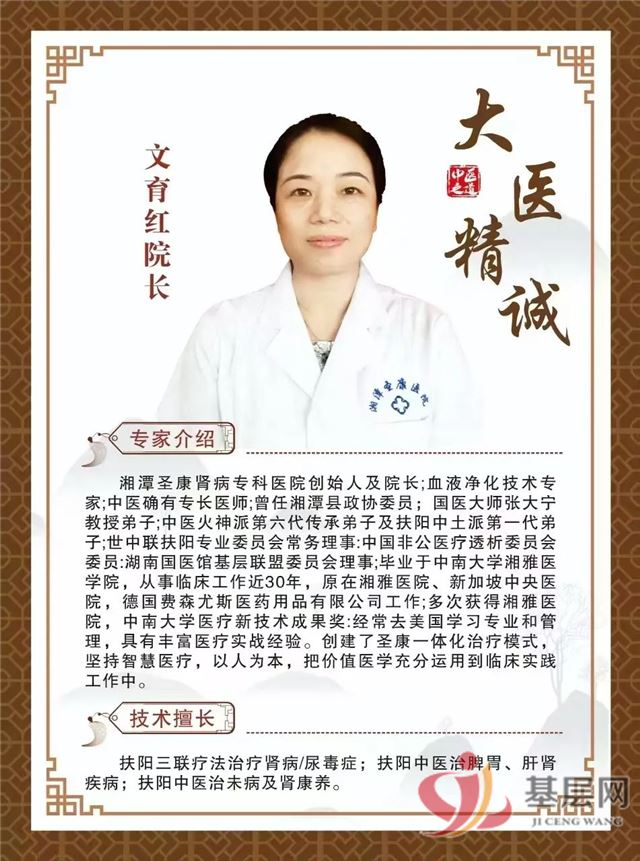 大医精诚
中医之道
文育红院长
湘潭圣康医院
专家介绍
湘潭圣康肾病专科医院创始人及院长;血液净化技术专
家;中医确有专长医师;曾任湘潭县政协委员；国医大师张大宁
教授弟子;中医火神派第六代传承弟子及扶阳中土派第一代弟
子;世中联扶阳专业委员会常务理事:中国非公医疗透析委员会
委员:湖南国医馆基层联盟委员会理事;毕业于中南大学湘雅医
学院，从事临床工作近30年，原在湘雅医院、新加坡中央医
院，德国费森尤斯医药用品有限公司工作;多次获得湘雅医
院，中南大学医疗新技术成果奖:经常去美国学习专业和管
理，具有丰富医疗实战经验。创建了圣康一体化治疗模式，
坚持智慧医疗，以人为本，把价值医学充分运用到临床实践
工作中。
技术擅长
扶阳三联疗法治疗肾病/尿毒症；扶阳中医治脾胃、肝肾
疾病；扶阳中医治未病及肾康养。
基层网
JI CENG WANG